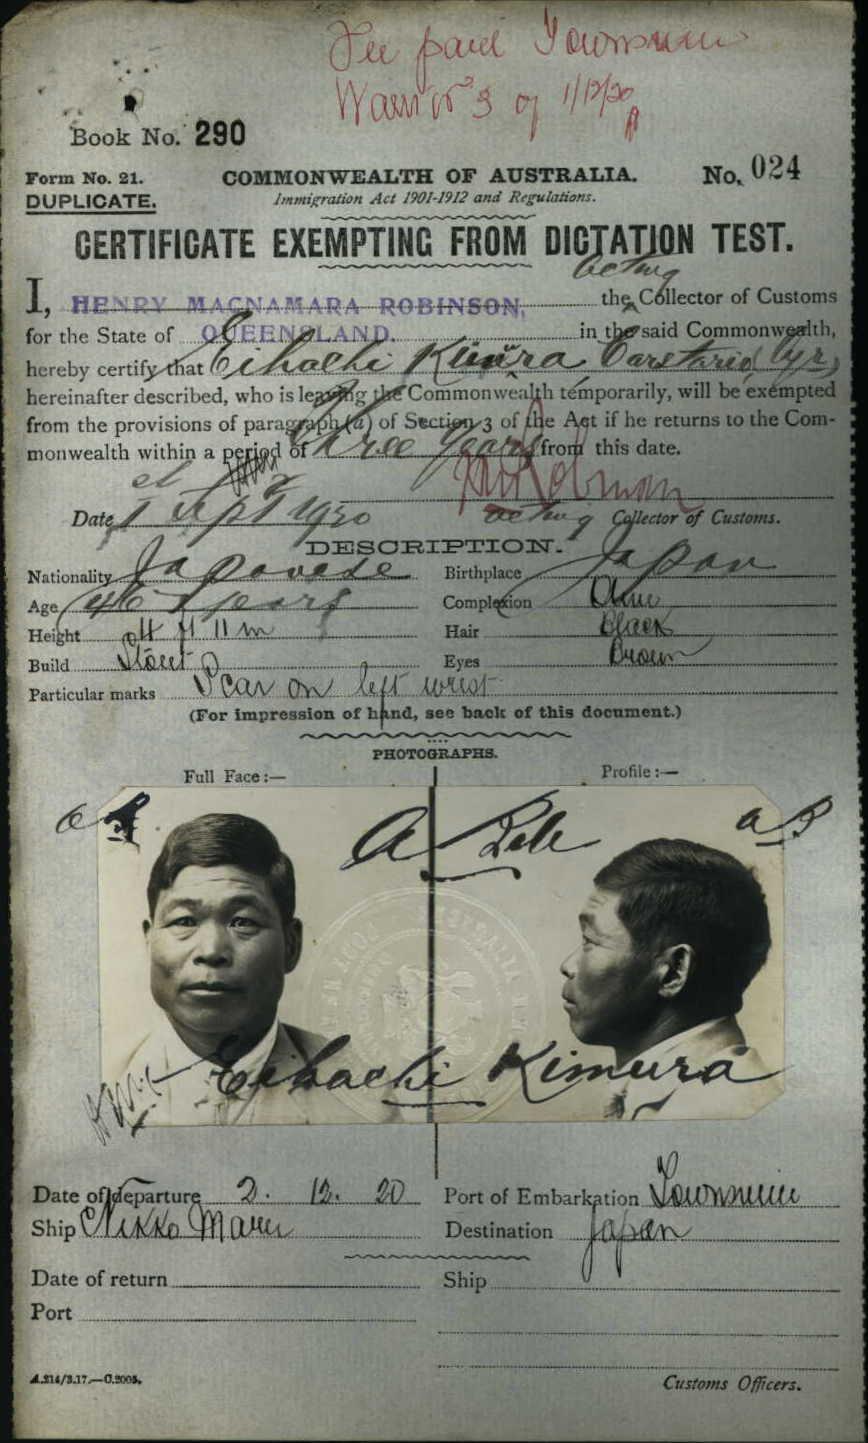 Fee paid Townsville
Warrior 3 of 1/12/20
Book No. 290
Form No. 21.
COMMONWEALTH OF AUSTRALIA.
No. 024
DUPLICATE.
Immigration Act 1901-1912 and Regulations.
CERTIFICATE EXEMPTING FROM DICTATION TEST.
acting
I, HENRY MACNAMARA ROBINSON, the Collector of Customs
for the State of QUEENSLAND, in the said Commonwealth,
hereby certify that Eihachi Kimura
hereinafter described, who is leaving the Commonwealth temporarily, will be exempted
from the provisions of paragraph (a) of Section 3 of the Act if he returns to the Com-
monwealth within a period of three years from this date.
Date 1st Sept 1920 acting Collector of Customs.
DESCRIPTION.
Nationality Japanese Birthplace Japan
Age 46 years Complexion
Height 4 ft 11 in Hair Black
Build Stout Eyes Brown
Particular marks Scar on left wrist
(For impression of hand, see back of this document.)
PHOTOGRAPHS.
Full Face:— Profile:—
Eihachi Kimura
Date of departure 2. 12. 20 Port of Embarkation Townsville
Ship Nikko Maru Destination Japan
Date of return Ship
Port
A.214/3.17.—C.2005. Customs Officers.